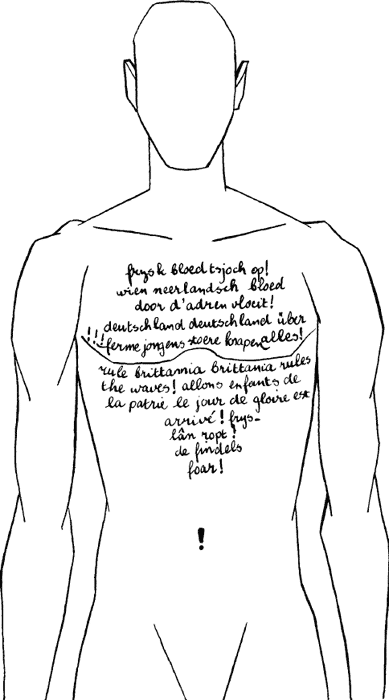 frysk bloed tsjoch op!
wien neerlandsch bloed
door d'adren vloeit!
deutschland deutschland über
!!! ferme jongens stoere knapen alles!
rule brittannia brittania rules
the waves! allons enfants de
la patrie le jour de gloire est
arrivé! frys-
lân ropt!
de findels
foar!
!